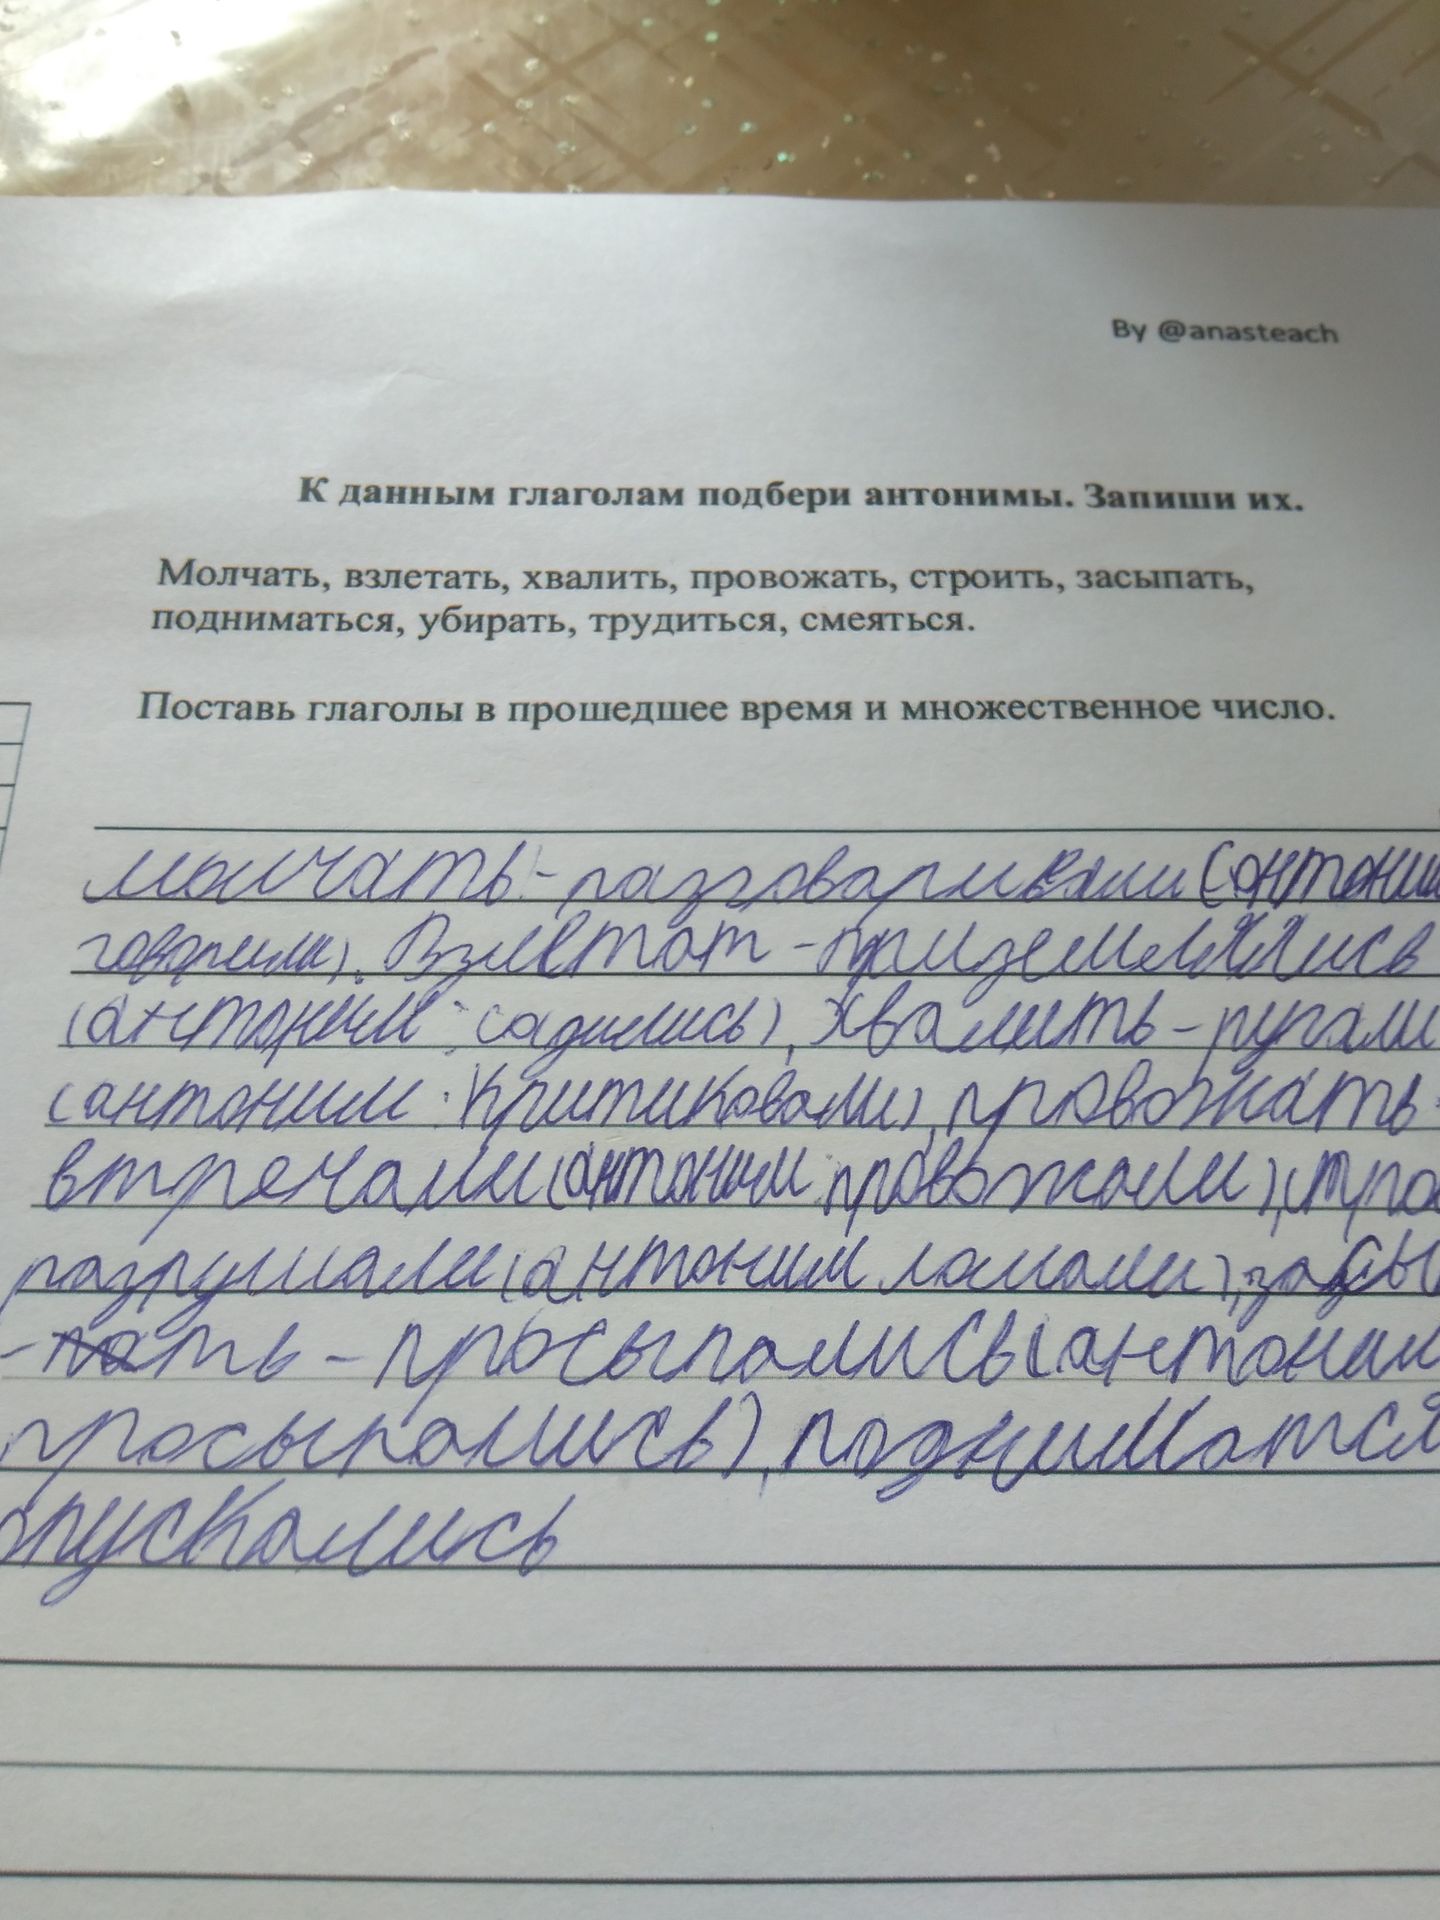 By @anasteach
К данным глаголам подбери антонимы. Запиши их.
Молчать, взлетать, хвалить, провожать, строить, засыпать,
подниматься, убирать, трудиться, смеяться.
Поставь глаголы в прошедшее время и множественное число.
молчать - разговаривали (антоним
говорили). Взлетат - приземлялись
(антоним : садились), Хвалить - ругали
(антоним : критиковали), провожать -
втречали (антоним провожали), стро
разрушали (антоним ломали), засы
- пать - просыпались (антоним
просыпались), подниматся
опускались